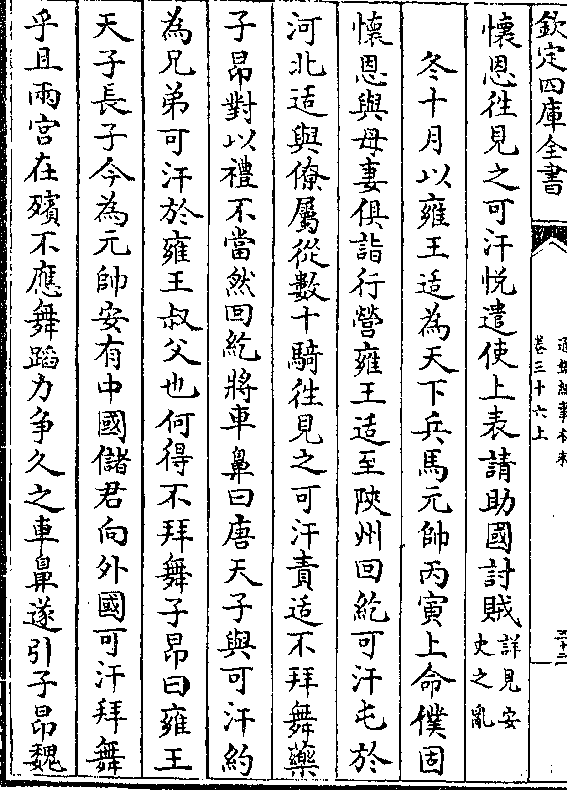 欽定四庫全書
通鑑紀事本末
卷三十六上
懷恩徃見之可汗悦遣使上表請助國討賊詳見安史之亂
冬十月以雍王适為天下兵馬元帥丙寅上命僕固
懷恩與母妻俱詣行營雍王适至陜州回紇可汗屯於
河北适與僚屬從數十騎徃見之可汗責适不拜舞藥
子昂對以禮不當然回紇將車鼻曰唐天子與可汗約
為兄弟可汗於雍王叔父也何得不拜舞子昂曰雍王
天子長子今為元帥安有中國儲君向外國可汗拜舞
乎且兩宫在殯不應舞蹈力争久之車鼻遂引子昂魏